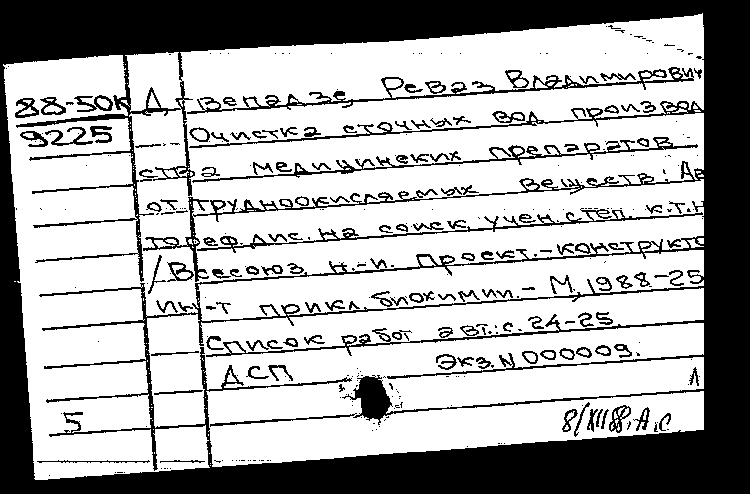 88-50К Двепадзе, Реваз Владимирович
9225 Очистка сточных вод производ
ства медицинских препаратов
от трудноокисляемых веществ: Ав
тореф. дис. на соиск. учен. степ. к.т.н
/Всесоюз. н.-и. проект.-конструкто
ин-т прикл. биохимии.- М, 1988-25
Список работ авт.: с. 24-25.
ДСП Экз. N 000009.
5 8/XII 88. А.С.